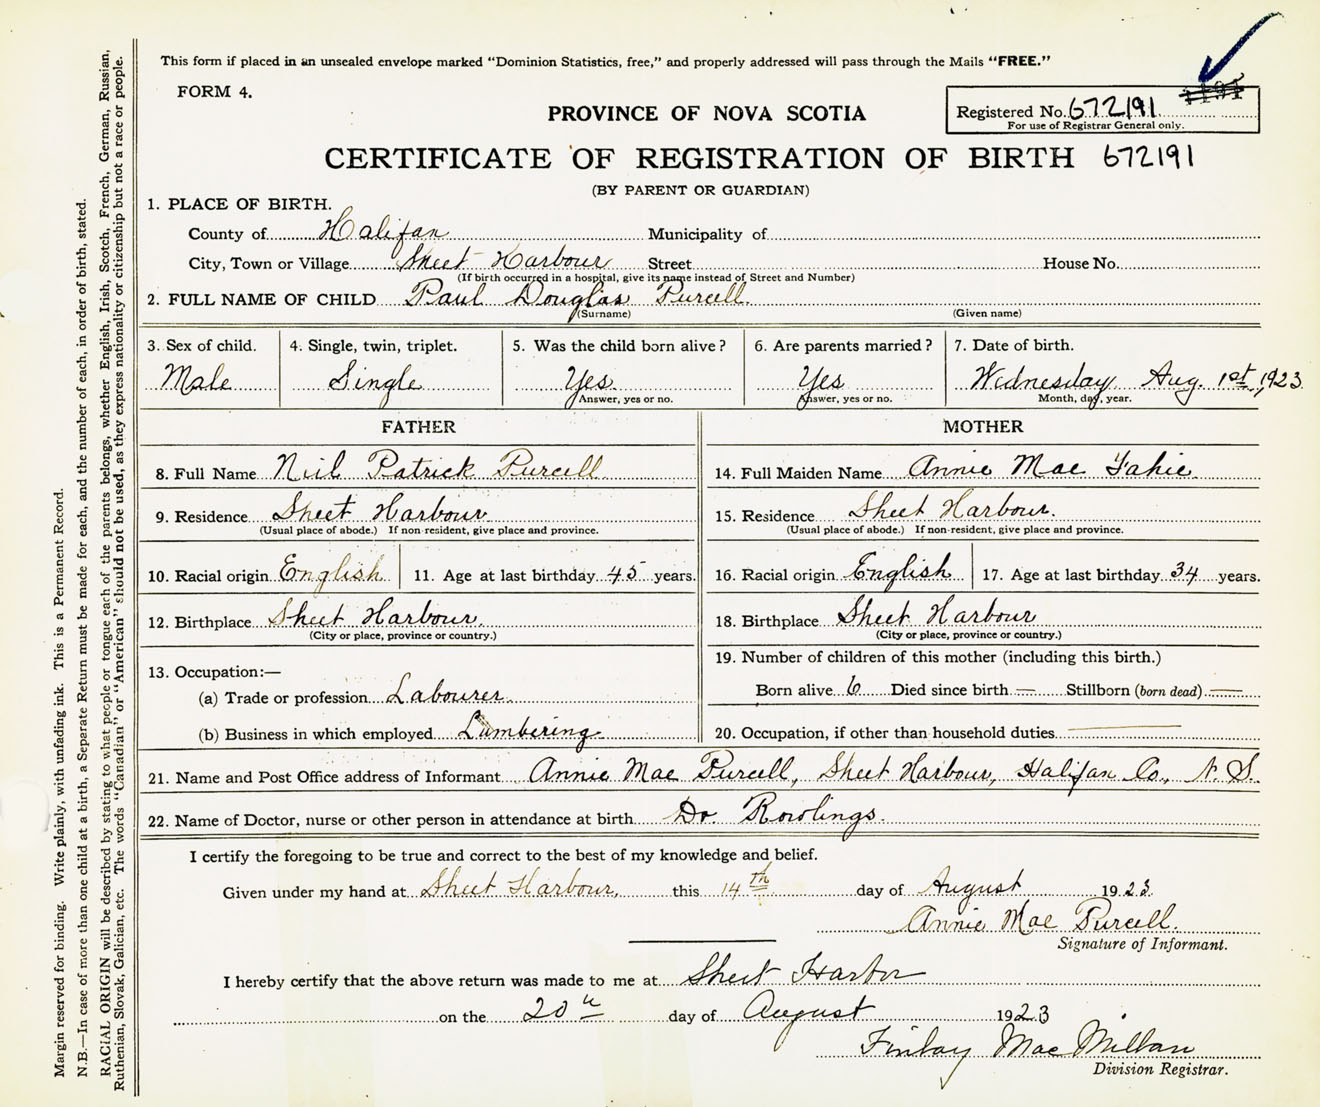 This form if placed in an unsealed envelope marked "Dominion Statistics, free," and properly addressed will pass through the Mails "FREE."
FORM 4.
PROVINCE OF NOVA SCOTIA
Registered No. 672191
For use of Registrar General only.
CERTIFICATE OF REGISTRATION OF BIRTH 672191
(BY PARENT OR GUARDIAN)
1. PLACE OF BIRTH.
County of Halifax Municipality of
City, Town or Village Sheet Harbour Street House No.
(If birth occurred in a hospital, give its name instead of Street and Number)
2. FULL NAME OF CHILD Paul Douglas Purcell
(Surname) (Given name)
3. Sex of child. 4. Single, twin, triplet. 5. Was the child born alive? 6. Are parents married? 7. Date of birth.
Male Single Yes Yes Wednesday Aug. 1st, 1923
Answer, yes or no. Answer, yes or no. Month, day, year.
FATHER MOTHER
8. Full Name Neil Patrick Purcell 14. Full Maiden Name Annie Mae Fahie
9. Residence Sheet Harbour 15. Residence Sheet Harbour.
(Usual place of abode.) If non-resident, give place and province. (Usual place of abode.) If non-resident, give place and province.
10. Racial origin English 11. Age at last birthday 45 years. 16. Racial origin English 17. Age at last birthday 34 years.
12. Birthplace Sheet Harbour. 18. Birthplace Sheet Harbour
(City or place, province or country.) (City or place, province or country.)
13. Occupation:— 19. Number of children of this mother (including this birth.)
(a) Trade or profession Labourer Born alive 6 Died since birth — Stillborn (born dead) —
(b) Business in which employed Lumbering 20. Occupation, if other than household duties —
21. Name and Post Office address of Informant Annie Mae Purcell, Sheet Harbour, Halifax Co., N. S.
22. Name of Doctor, nurse or other person in attendance at birth Dr Rowlings.
I certify the foregoing to be true and correct to the best of my knowledge and belief.
Given under my hand at Sheet Harbour, this 14th day of August 1923
Annie Mae Purcell.
Signature of Informant.
I hereby certify that the above return was made to me at Sheet Harbor
on the 20th day of August 1923
Finlay MacMillan
Division Registrar.
Margin reserved for binding. Write plainly, with unfading ink. This is a Permanent Record.
N.B.—In case of more than one child at a birth, a Separate Return must be made for each, and the number of each, in order of birth, stated.
RACIAL ORIGIN will be described by stating to what people or tongue each of the parents belongs, whether English, Irish, Scotch, French, German, Russian,
Ruthenian, Slovak, Galician, etc. The words "Canadian" or "American" should not be used, as they express nationality or citizenship but not a race or people.